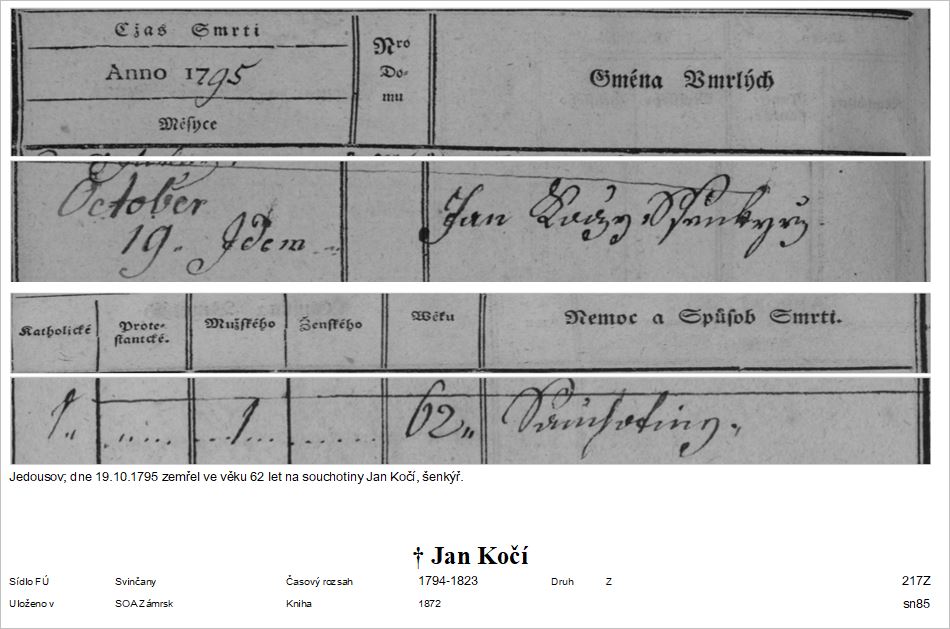 Cžas Smrti
Anno 1795
Měsyce
Nro
Do-
mu
Gména Vmrlých
October
19. Idem
Jan Koczy Ssenkyrz
Katholické
Prote-
stantcké.
Mužského
Ženského
Wěku
Nemoc a Spůsob Smrti.
1. 1. 62. Sauchotiny.
Jedousov; dne 19.10.1795 zemřel ve věku 62 let na souchotiny Jan Kočí, šenkýř.
† Jan Kočí
Sídlo FÚ Svinčany Časový rozsah 1794-1823 Druh Z 217Z
Uloženo v SOA Zámrsk Kniha 1872 sn85